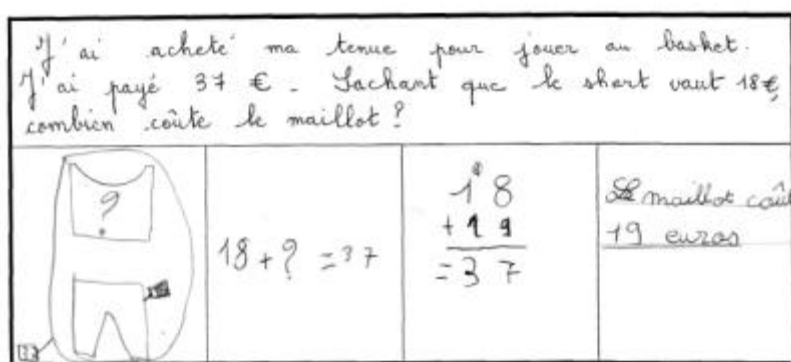 J'ai acheté ma tenue pour jouer au basket.
J'ai payé 37 €. Sachant que le short vaut 18€,
combien coûte le maillot ?
?
18 + ? = 37
18
+ 19
= 37
Le maillot coût
19 euros